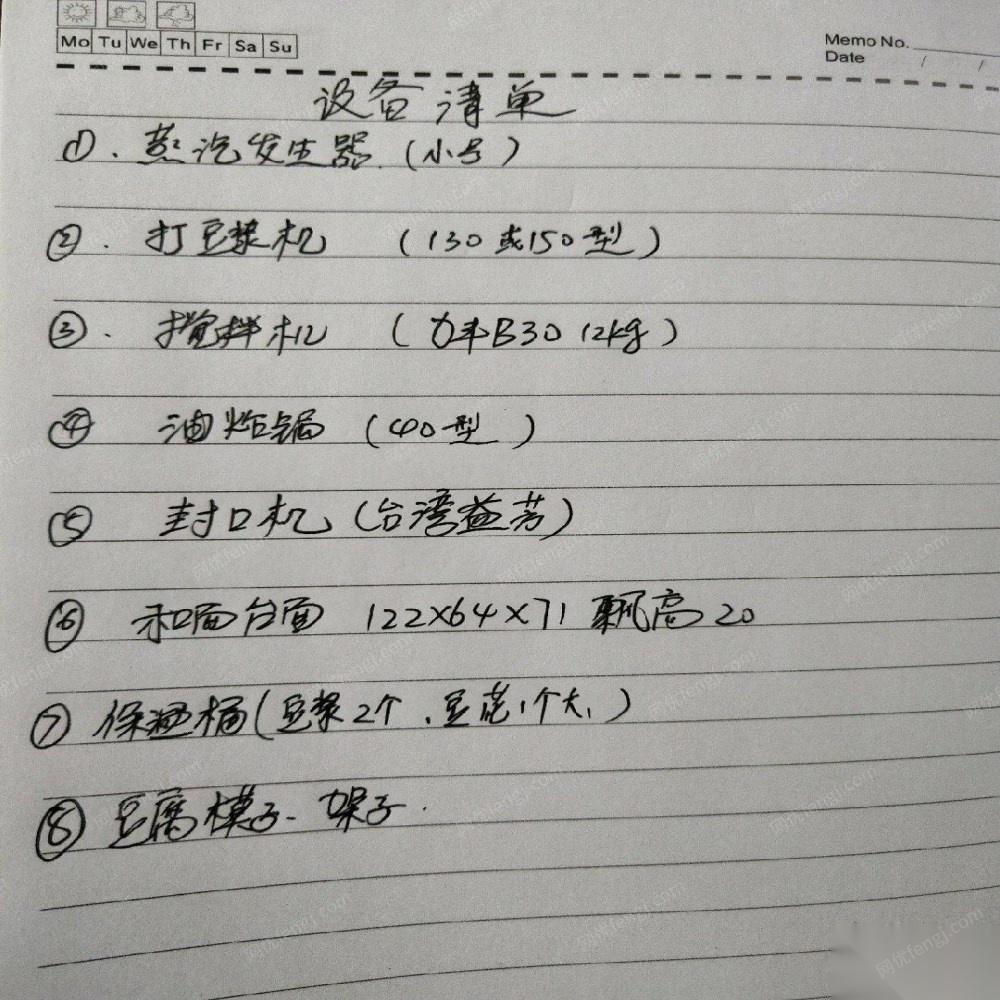 Mo Tu We Th Fr Sa Su
Memo No.
Date / /
设备清单
①. 蒸汽发生器.(小号)
②. 打豆浆机 (130或150型)
③. 搅拌机 (力丰B30 12kg)
④ 油炸锅 (40型)
⑤ 封口机(台湾益芳)
⑥ 和面台面 122×64×71 飘高20
⑦ 保温桶(豆浆2个、豆花1个大)
⑧ 豆腐模子、架子.
网优fengj.com